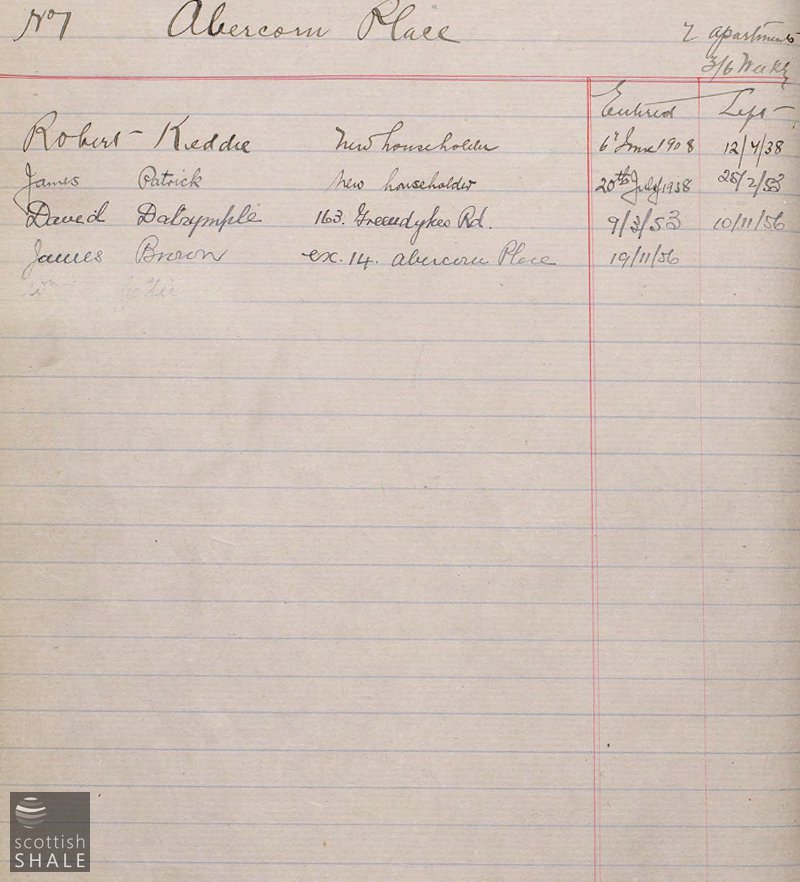 No 1 Abercorn Place 2 apartments
3/6 Weekly
Entered Left
Robert Keddie New householder 6th June 1908 12/7/38
James Patrick New householder 20th July 1938 25/2/53
David Dalrymple 163. Greendykes Rd. 9/3/53 10/11/56
James Brown ex. 14. Abercorn Place 19/11/56
scottish
SHALE